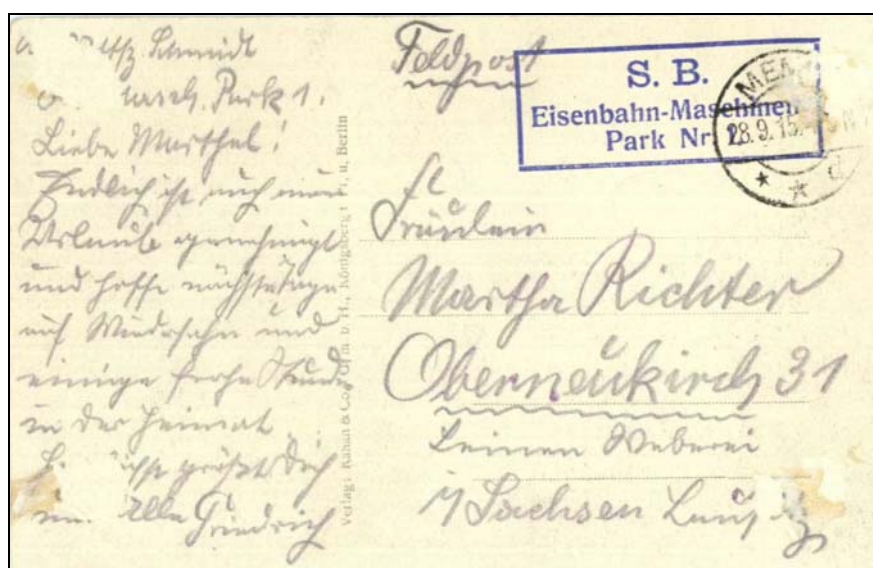 Schmidt
Park 1.
Liebe Marthel!
Endlich ist auch mein
Urlaub genehmigt
und hoffe nächste Tage
auf Wiedersehn und
einige frohe Stunden
in der Heimat
grüßt Dich
Alle Friedrich
Verlag: Kahan & Co., G. m. b. H., Königsberg i. Pr. u. Berlin
Feldpost
S. B.
Eisenbahn-Maschinen
Park Nr. 1.
28.9.15.
Fräulein
Martha Richter
Oberneukirch 31
Leinen Weberei
i/Sachsen